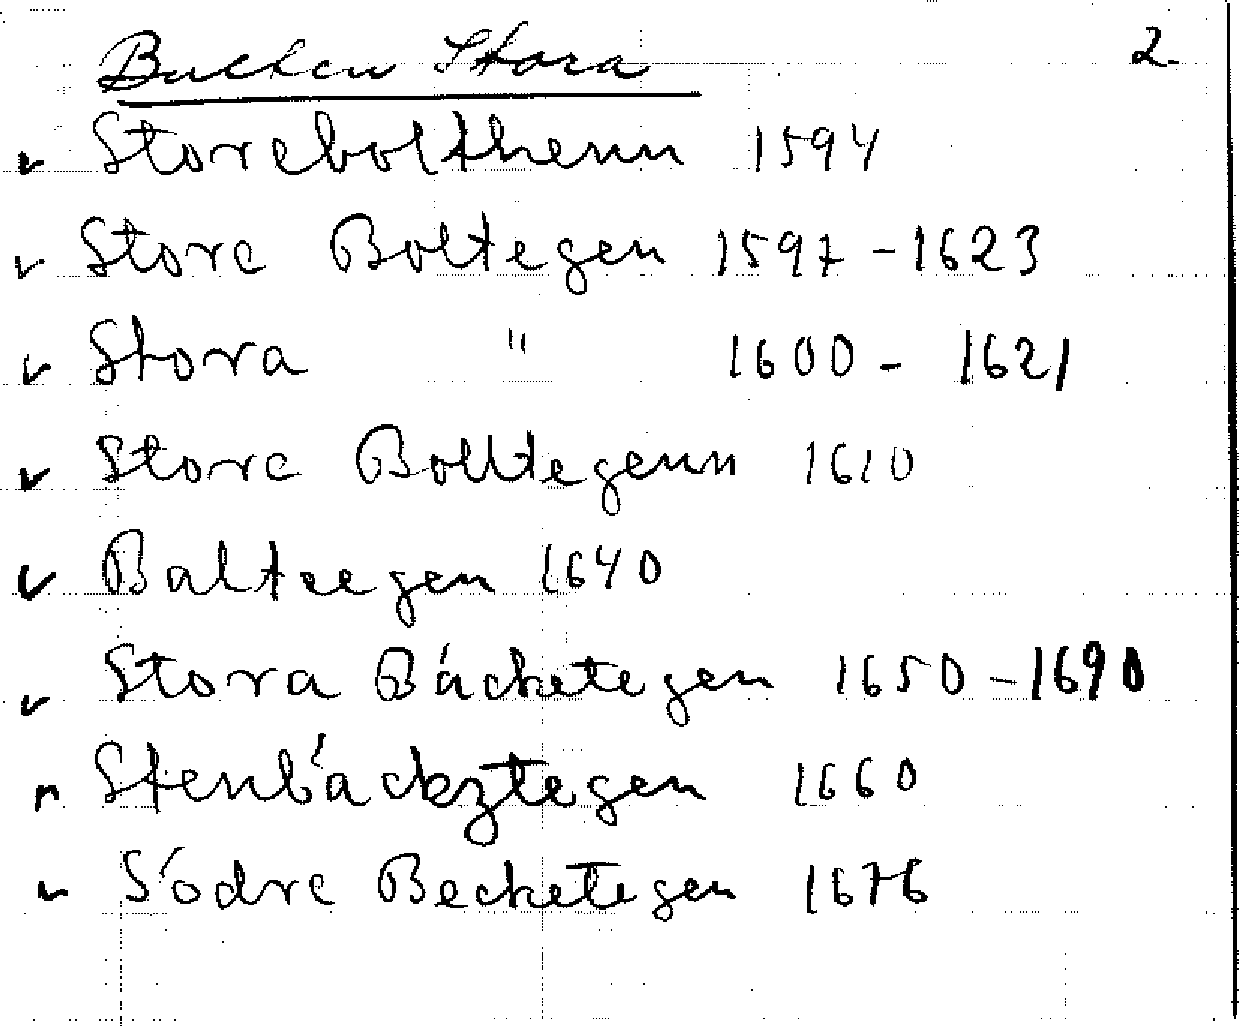 Backen Stora 2.
Storebolthenn 1594
Store Boltegen 1597-1623
Stora " 1600 - 1621
Store Bolltegenn 1610
Balteegen 1640
Stora Báchetegen 1650-1690
Stenbáckztegen 1660
Södre Bechetegen 1676